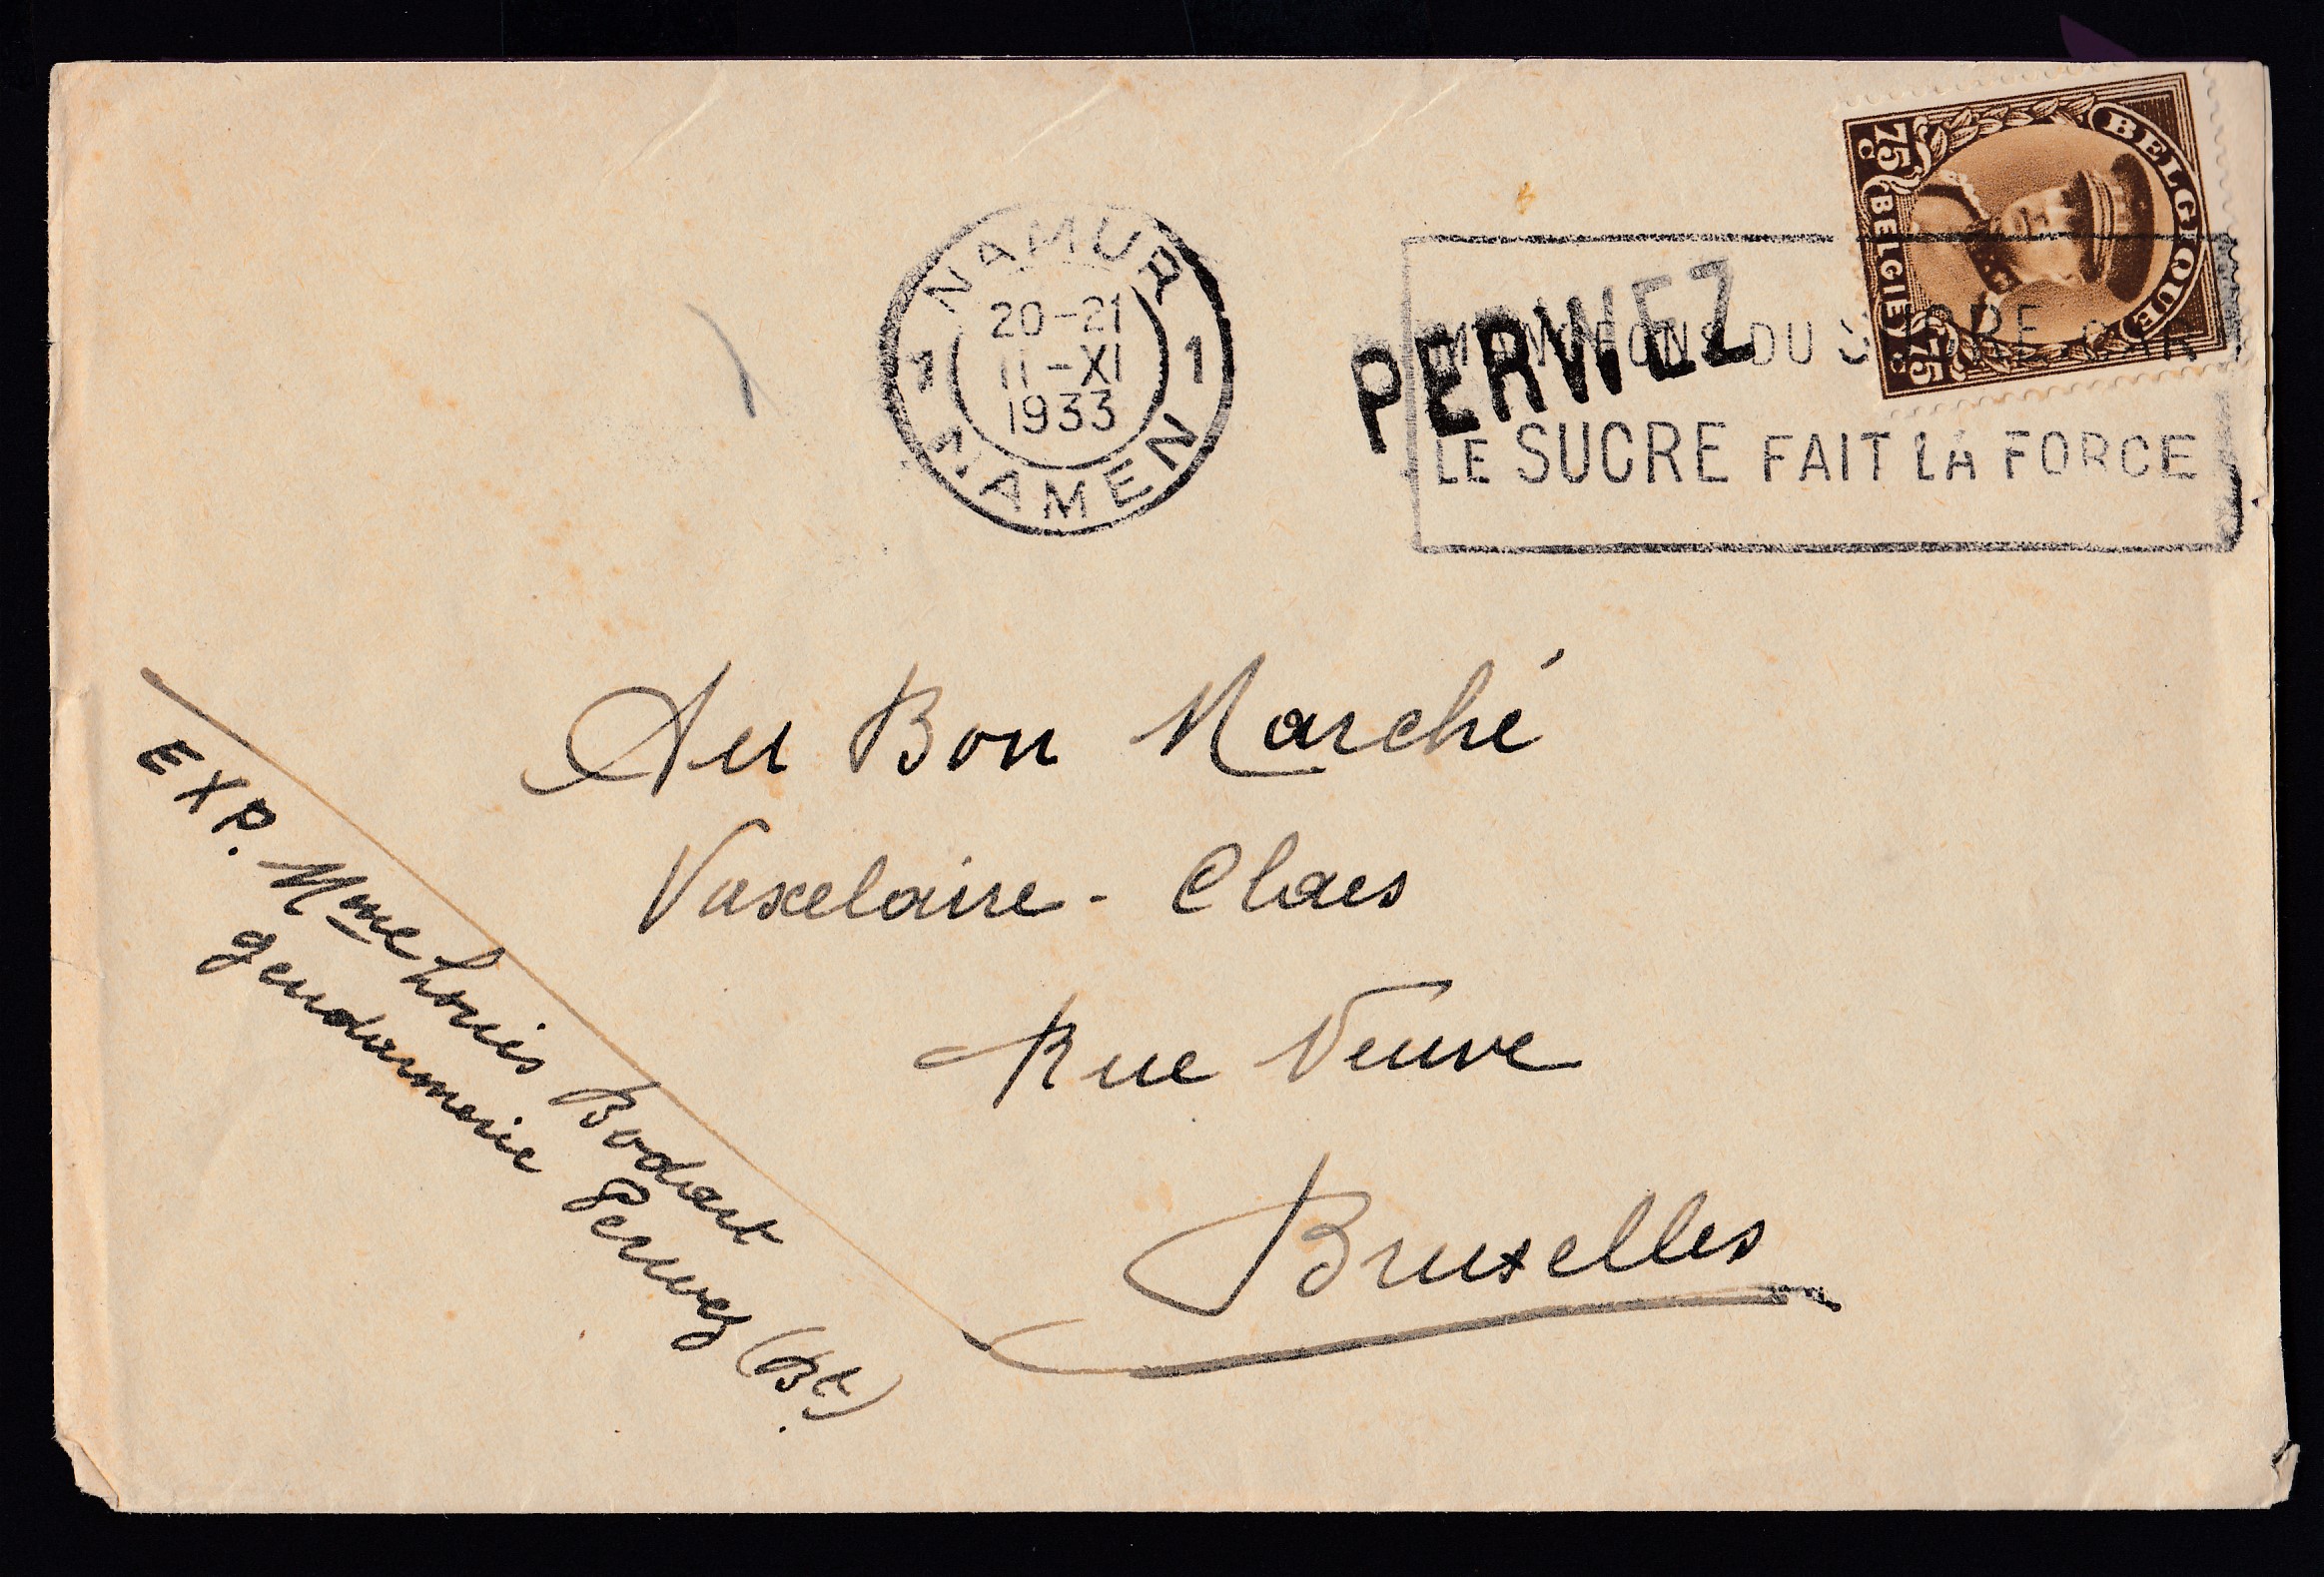 NAMUR
1 20-21 1
11-XI
1933
NAMEN
PERWEZ
MANGEONS DU SUCRE, CAR
LE SUCRE FAIT LA FORCE
BELGIQUE
75 C BELGIE 75 C
Au Bon Marché
Vaxelaire - Claes
Rue Neuve
Bruxelles
EXP. Mme Louis Bodart
gendarmerie Perwez (Bt)